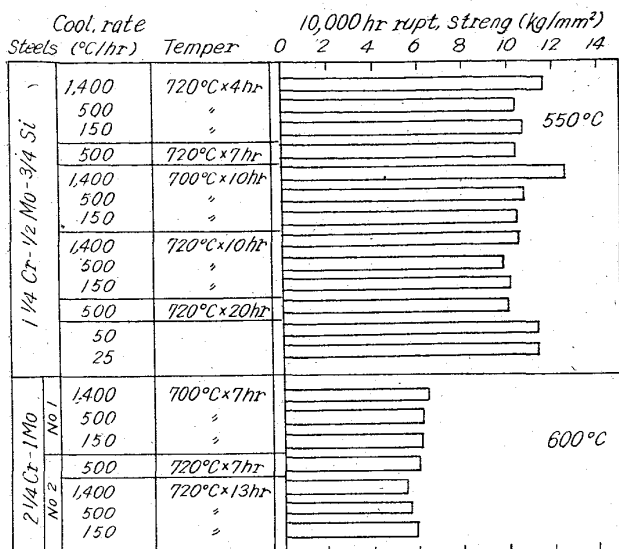 Cool. rate 10,000 hr rupt, streng (kg/mm²)
Steels (°C/hr) Temper 0 2 4 6 8 10 12 14
1 1/4 Cr-1/2 Mo-3/4 Si
1,400 720°C×4hr
500 〃
150 〃
550°C
500 720°C×7hr
1,400 700°C×10hr
500 〃
150 〃
1,400 720°C×10hr
500 〃
150 〃
500 720°C×20hr
50
25
2 1/4 Cr-1Mo
No 1
1,400 700°C×7hr
500 〃
150 〃
600°C
500 720°C×7hr
No 2
1,400 720°C×13hr
500 〃
150 〃